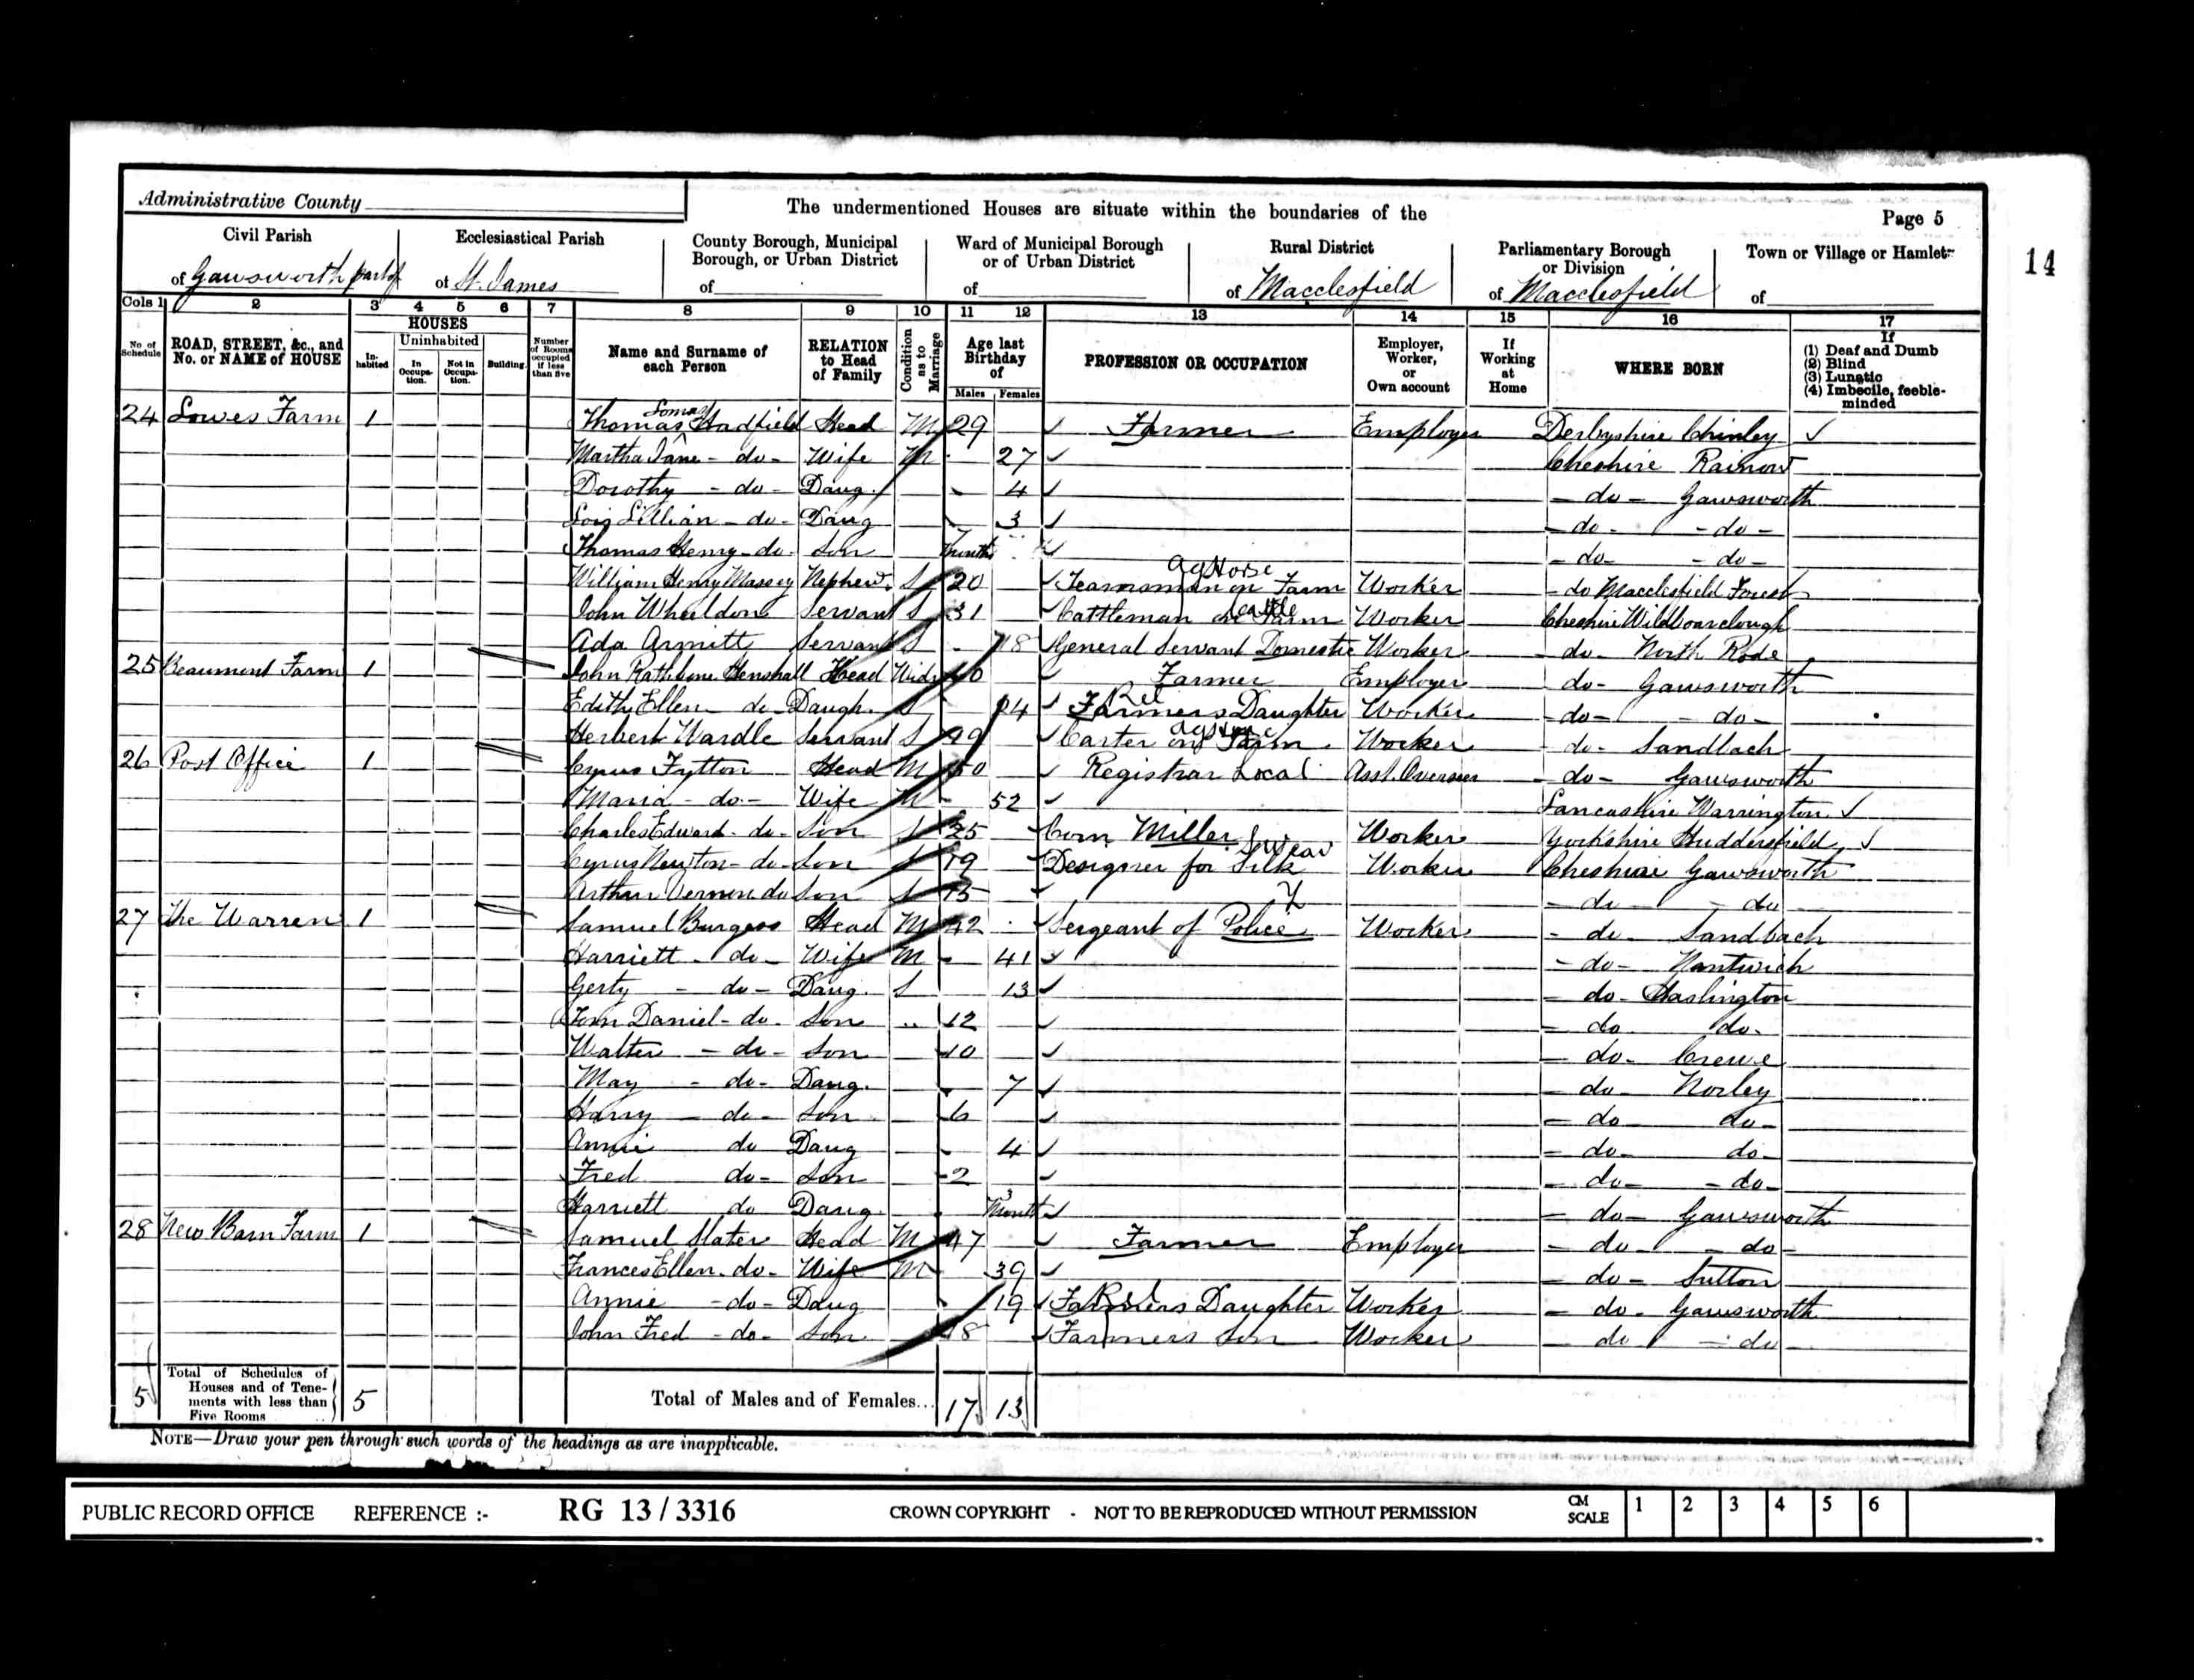 Administrative County
The undermentioned Houses are situate within the boundaries of the
Page 5
14
Civil Parish
of Gawsworth part of
Ecclesiastical Parish
of St. James
County Borough, Municipal Borough, or Urban District
of
Ward of Municipal Borough or of Urban District
of
Rural District
of Macclesfield
Parliamentary Borough or Division
of Macclesfield
Town or Village or Hamlet
of
Cols 1 2 3 4 5 6 7 8 9 10 11 12 13 14 15 16 17
No of Schedule
ROAD, STREET, &c., and No. or NAME of HOUSE
HOUSES
In-habited
Uninhabited
In Occupa-tion.
Not in Occupa-tion.
Building
Number of Rooms occupied if less than five
Name and Surname of each Person
RELATION to Head of Family
Condition as to Marriage
Age last Birthday of
Males Females
PROFESSION OR OCCUPATION
Employer, Worker, or Own account
If Working at Home
WHERE BORN
If
(1) Deaf and Dumb
(2) Blind
(3) Lunatic
(4) Imbecile, feeble-minded
24 Lowes Farm 1 Thomas Hadfield Head M 29 Farmer Employer Derbyshire Chinley
Martha Jane - do - Wife M 27 Cheshire Rainow
Dorothy - do - Daug. 4 - do - Gawsworth
Lois Lillian - do - Daug 3 - do - - do -
Thomas Henry - do - Son months - do - - do -
Ag Horse
William Henry Massey Nephew S 20 Teamsman on Farm Worker - do Macclesfield Forest
cattle
John Wheeldon Servant S 31 Cattleman on Farm Worker Cheshire Wildboarclough
Ada Armitt Servant S 18 General Servant Domestic Worker - do - North Rode
25 Beaumont Farm 1 John Rathbone Henshall Head Widr Farmer Employer - do - Gawsworth
Rel
Edith Ellen do - Daugh. S 24 Farmers Daughter Worker - do - - do -
Herbert Wardle Servant S 19 Carter on Farm Worker - do - Sandbach
26 Post Office 1 Cyrus Fytton Head M 50 Registrar Local Asst. Overseer - do - Gawsworth
Maria - do - Wife M 52 Lancashire Warrington
Charles Edward - do - Son S 25 Corn Miller Worker Yorkshire Huddersfield
Cyrus Newton - do - Son S 19 Designer for Silk Worker Cheshire Gawsworth
Arthur Vernon do Son S 15 - do - - do -
27 The Warren 1 Samuel Burgess Head M 42 Sergeant of Police Worker - do - Sandbach
Harriett - do - Wife M 41 - do - Nantwich
Gerty - do - Daug. S 13 - do - Haslington
Tom Daniel - do - Son 12 - do - do -
Walter - do - Son 10 - do - Crewe
May - do - Daug. 7 - do - Norley
Harry - do - Son 6 - do - do -
Annie do Daug 4 - do - do -
Fred do - Son 2 - do - - do -
Harriett do Daug. 3 Month - do - Gawsworth
28 New Barn Farm 1 Samuel Slater Head M 47 Farmer Employer - do - - do -
Frances Ellen - do - Wife M 39 - do - Sutton
Annie - do - Daug 19 Farmers Daughter Worker - do - Gawsworth
John Fred - do - Son 18 Farmers Son Worker - do - do -
5 Total of Schedules of Houses and of Tene-ments with less than Five Rooms 5 Total of Males and of Females... 17 13
NOTE—Draw your pen through such words of the headings as are inapplicable.
PUBLIC RECORD OFFICE REFERENCE :- RG 13 / 3316 CROWN COPYRIGHT - NOT TO BE REPRODUCED WITHOUT PERMISSION CM SCALE 1 2 3 4 5 6